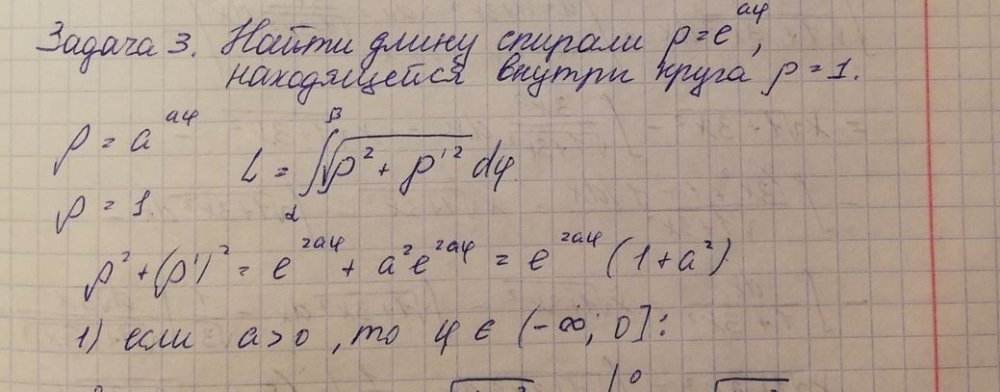 Задача 3. Найти длину спирали ρ = e^{aφ},
находящейся внутри круга ρ = 1.
ρ = a^{aφ}
L = ∫_α^β √(ρ² + ρ'²) dφ
ρ = 1.
ρ² + (ρ')² = e^{2aφ} + a²e^{2aφ} = e^{2aφ} (1 + a²)
1) если a > 0, то φ ∈ (-∞; 0]: